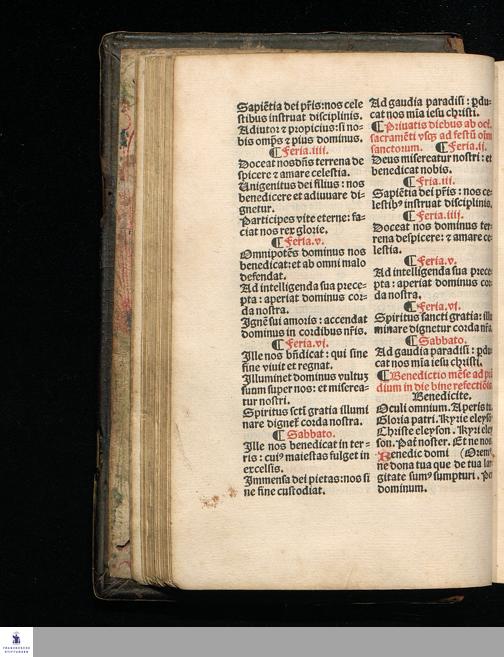 Sapiētia dei p̄ris: nos cele
stibus instruat disciplinis.
Adiutor ⁊ propicius: si no⸗
bis omp̄s ⁊ pius dominus.
¶ Feria.iiii.
Doceat nosdn̄s terrena de
spicere ⁊ amare celestia.
Unigenitus dei filius: nos
benedicere et adiuuare di⸗
gnetur.
Participes vite eterne: fa⸗
ciat nos rex glorie.
¶ Feria.v.
Omnipotēs dominus nos
benedicat: et ab omni malo
defendat.
Ad intelligenda sua prece⸗
pta: aperiat dominus cor⸗
da nostra.
Ignē sui amoris: accendat
dominus in cordibus nr̄is.
¶ Feria.vi.
Ille nos bn̄dicat: qui sine
fine viuit et regnat.
Illuminet dominus vultū
suum super nos: et miserea⸗
tur nostri.
Spiritus scti gratia illumi
nare dignet̄ corda nostra.
¶ Sabbato.
Ille nos benedicat in ter⸗
ris: cuiꝰ maiestas fulget in
excelsis.
Immensa dei pietas: nos si
ne fine custodiat.
Ad gaudia paradisi: ꝑdu⸗
cat nos mīa iesu christi.
¶ Priuatis diebus ab oct.
sacramēti vsqꝫ ad festū oīm
sanctorum. ¶ Feria.ii.
Deus misereatur nostri: et
benedicat nobis.
¶ Fria.iii.
Sapiētia dei p̄ris: nos ce⸗
lestibꝰ instruat disciplinis.
¶ Feria.iiij.
Doceat nos dominus ter⸗
rena despicere: ⁊ amare ce⸗
lestia.
¶ Feria.v.
Ad intelligenda sua prece⸗
pta: aperiat dominus cor
da nostra.
¶ Feria.vi.
Spiritus sancti gratia: illu
minare dignetur corda nr̄a
¶ Sabbato.
Ad gaudia paradisi: ꝑdu
cat nos mīa iesu christi.
¶ Benedictio mēse ad
dium in die bine refectiōis
Benedicite.
Oculi omnium. Aperis tu
Gloria patri. Kyrie eleys
Christe eleyson. Kyrie eley
son. Pat̄ noster. Et ne nos
Benedic domi (Orem⁹
ne dona tua que de tua lar
gitate sumꝰ sumpturi. Per
dominum.
FRANCKESCHE
STIFTUNGEN